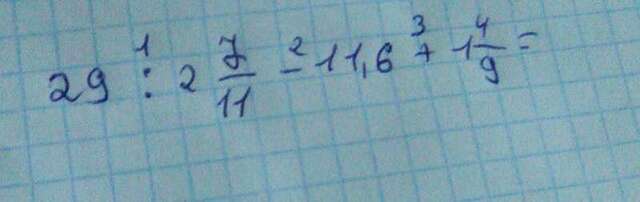 29 :¹ 2 7/11 -² 11,6 +³ 1 4/9 =